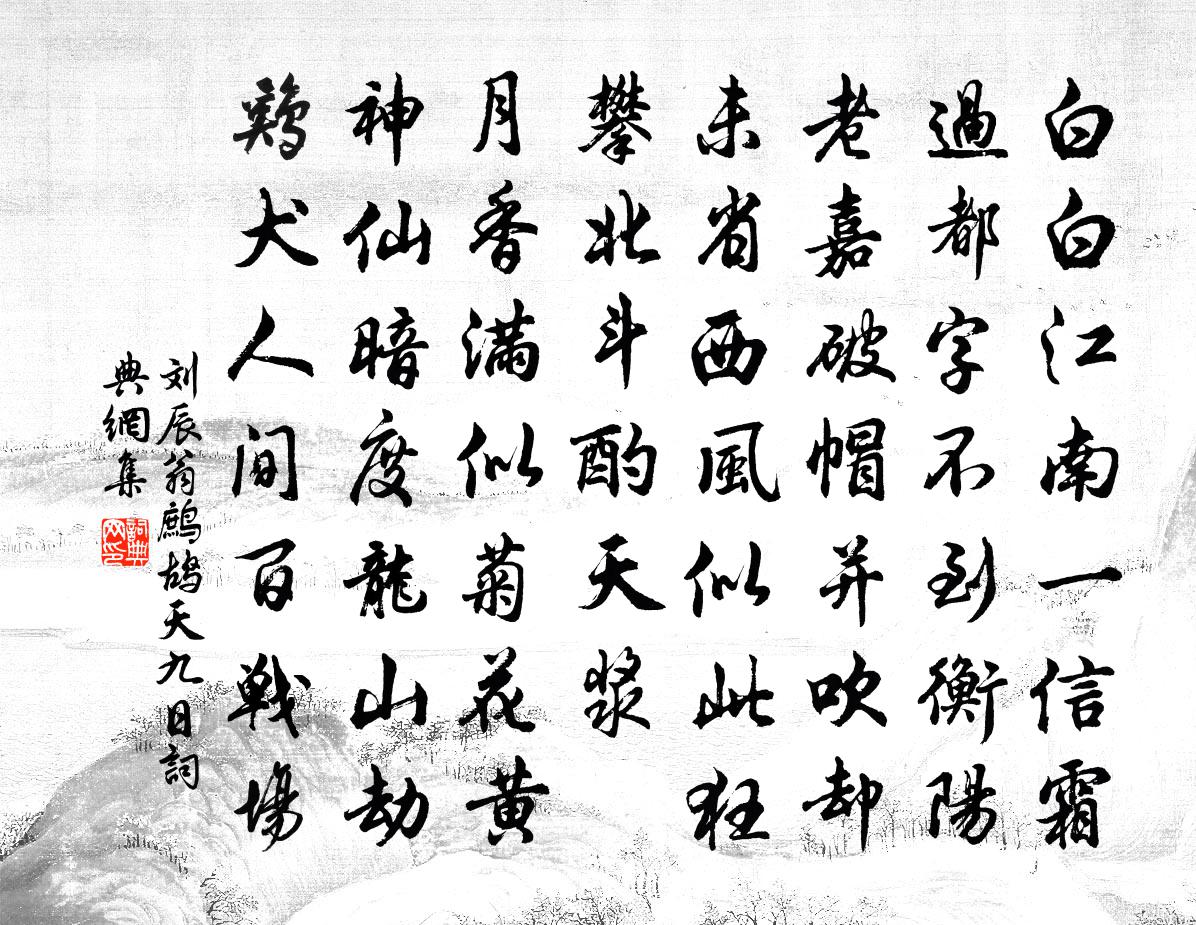 白白江南一信霜
過都字不到衡陽
老嘉破帽并吹却
未省西風似此狂
攀北斗酌天漿
月香滿似菊花黄
神仙暗度龍山劫
鷄犬人間百戰場
刘辰翁鷓鴣天九日詞
典網集
詞典
网印